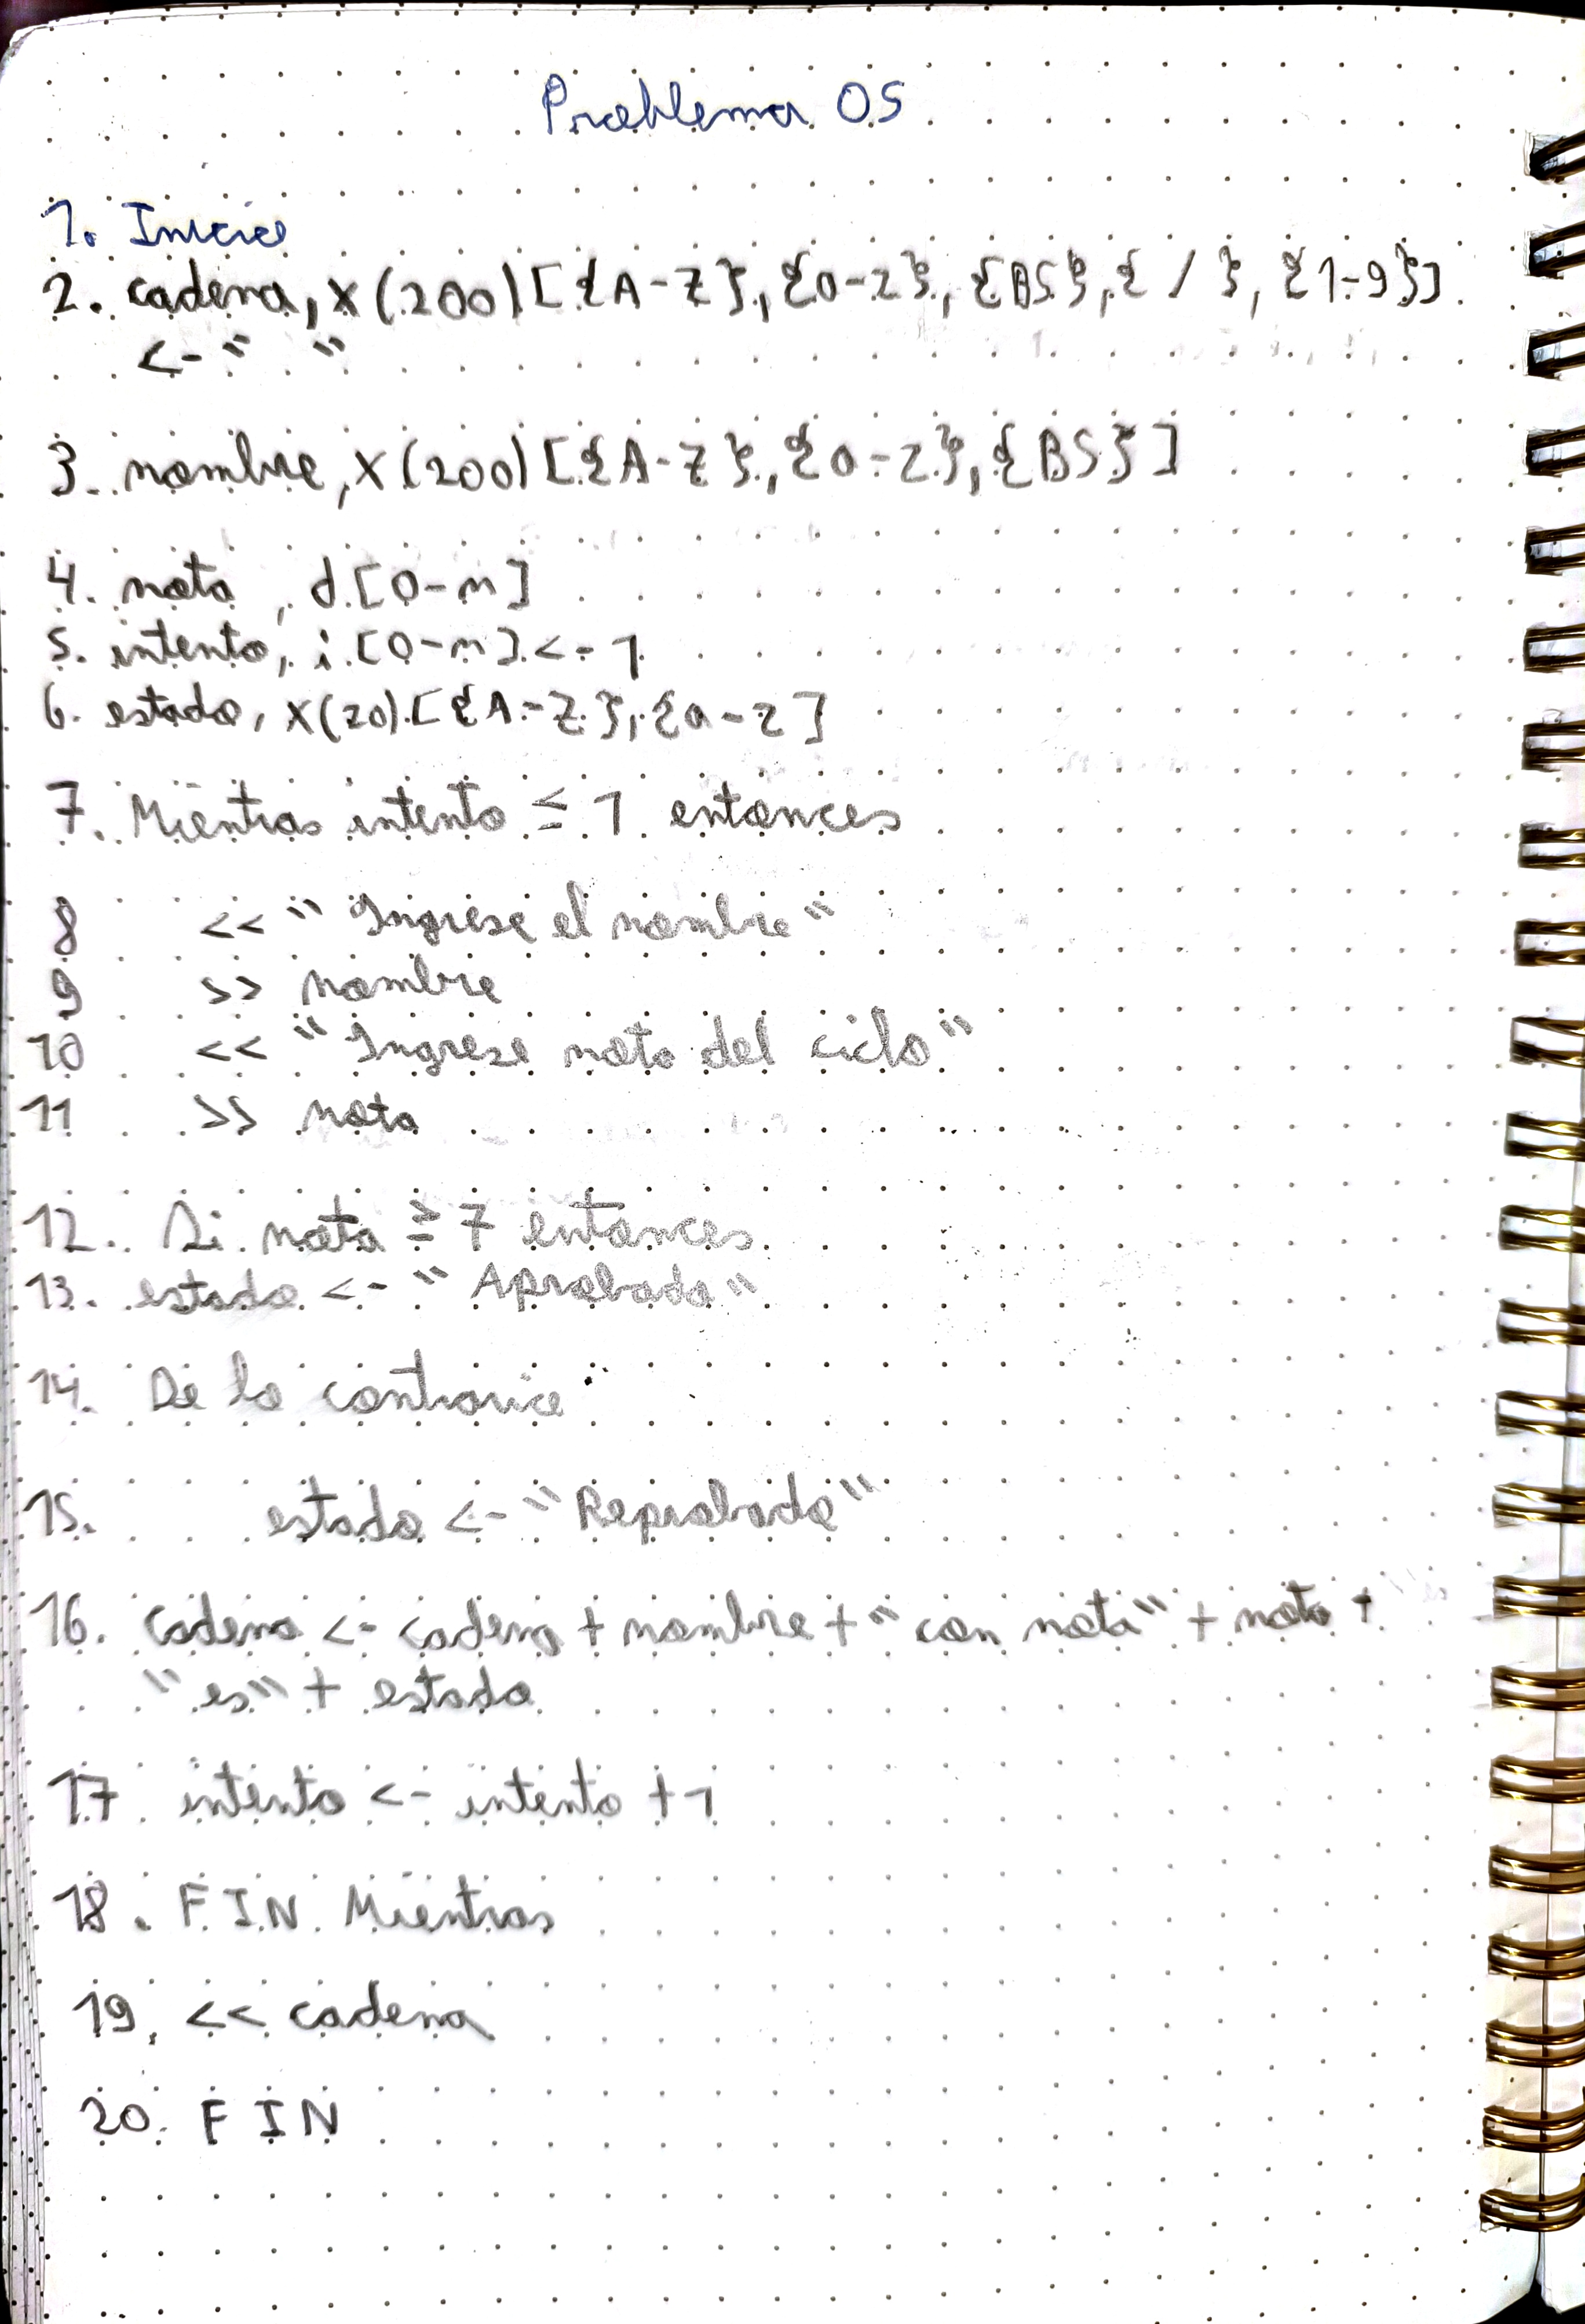 Problema 05
1. Inicio
2. cadena, X(200)[{A-Z}, {a-z}, {BS}, { / }, {1-9}]
<- " "
3. nombre, X(200)[{A-Z}, {a-z}, {BS}]
4. nota, d[0-n]
5. intento, i[0-n] <- 1
6. estado, X(20)[{A-Z}, {a-z]
7. Mientras intento ≤ 1 entonces
8 << "Ingrese el nombre"
9 >> nombre
10 << "Ingrese nota del ciclo"
11 >> nota
12. Si nota ≥ 7 entonces
13. estado <- "Aprobado"
14. De lo contrario
15. estado <- "Reprobado"
16. cadena <- cadena + nombre + "con nota" + nota +
"es" + estado
17 intento <- intento +1
18. FIN Mientras
19. << cadena
20. FIN